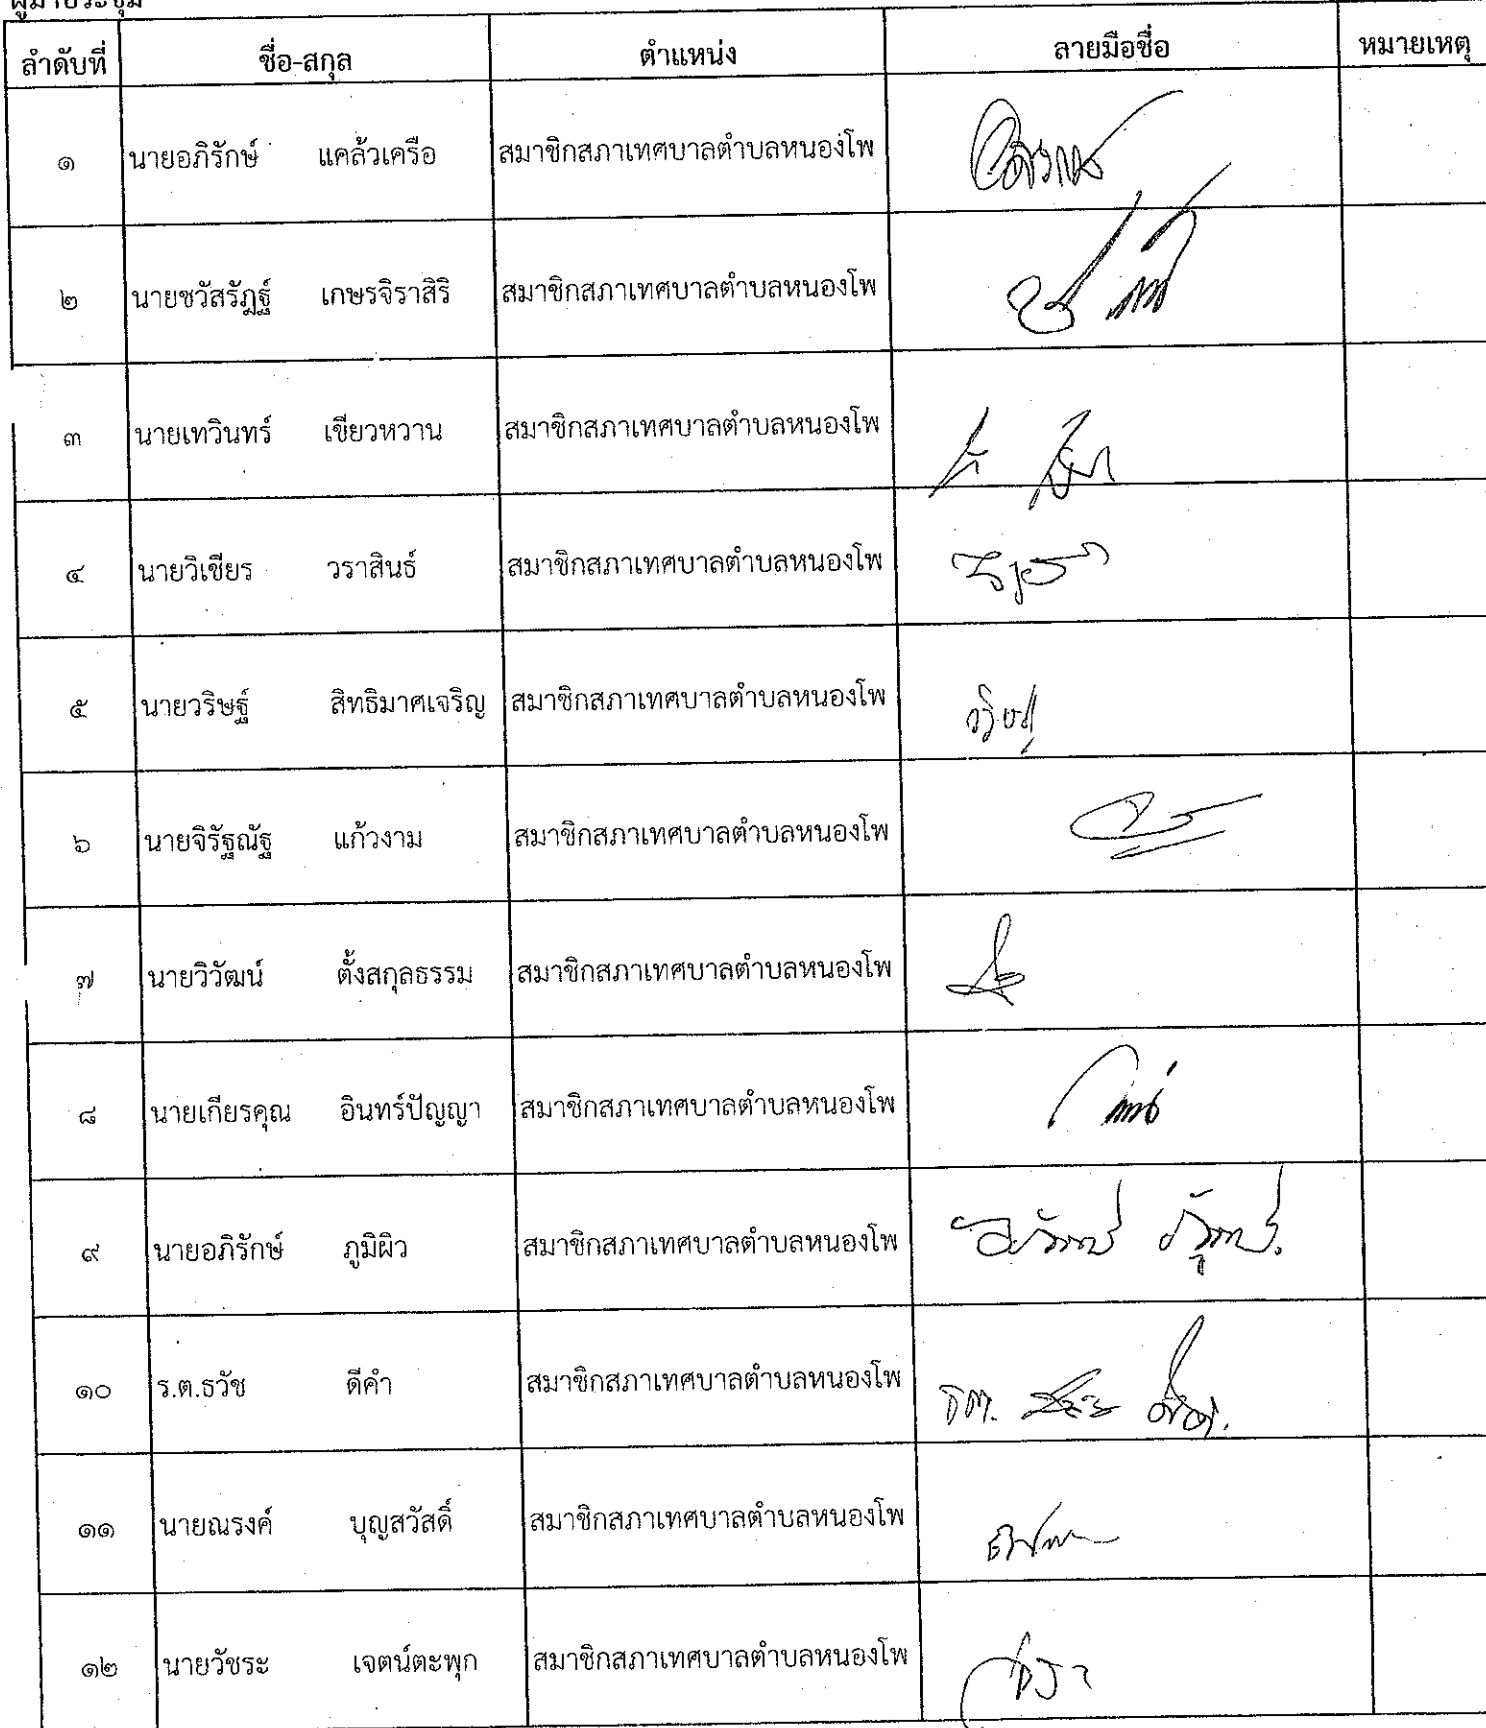 ผู้มาประชุม
ลำดับที่ ชื่อ-สกุล ตำแหน่ง ลายมือชื่อ หมายเหตุ
๑ นายอภิรักษ์ แคล้วเครือ สมาชิกสภาเทศบาลตำบลหนองโพ
๒ นายชวัสรัฏฐ์ เกษรจิราสิริ สมาชิกสภาเทศบาลตำบลหนองโพ
๓ นายเทวินทร์ เขียวหวาน สมาชิกสภาเทศบาลตำบลหนองโพ
๔ นายวิเชียร วราสินธ์ สมาชิกสภาเทศบาลตำบลหนองโพ
๕ นายวริษฐ์ สิทธิมาศเจริญ สมาชิกสภาเทศบาลตำบลหนองโพ วริษฐ์
๖ นายจิรัฐณัฐ แก้วงาม สมาชิกสภาเทศบาลตำบลหนองโพ
๗ นายวิวัฒน์ ตั้งสกุลธรรม สมาชิกสภาเทศบาลตำบลหนองโพ
๘ นายเกียรคุณ อินทร์ปัญญา สมาชิกสภาเทศบาลตำบลหนองโพ
๙ นายอภิรักษ์ ภูมิผิว สมาชิกสภาเทศบาลตำบลหนองโพ
๑๐ ร.ต.ธวัช ดีคำ สมาชิกสภาเทศบาลตำบลหนองโพ
๑๑ นายณรงค์ บุญสวัสดิ์ สมาชิกสภาเทศบาลตำบลหนองโพ
๑๒ นายวัชระ เจตน์ตะพุก สมาชิกสภาเทศบาลตำบลหนองโพ